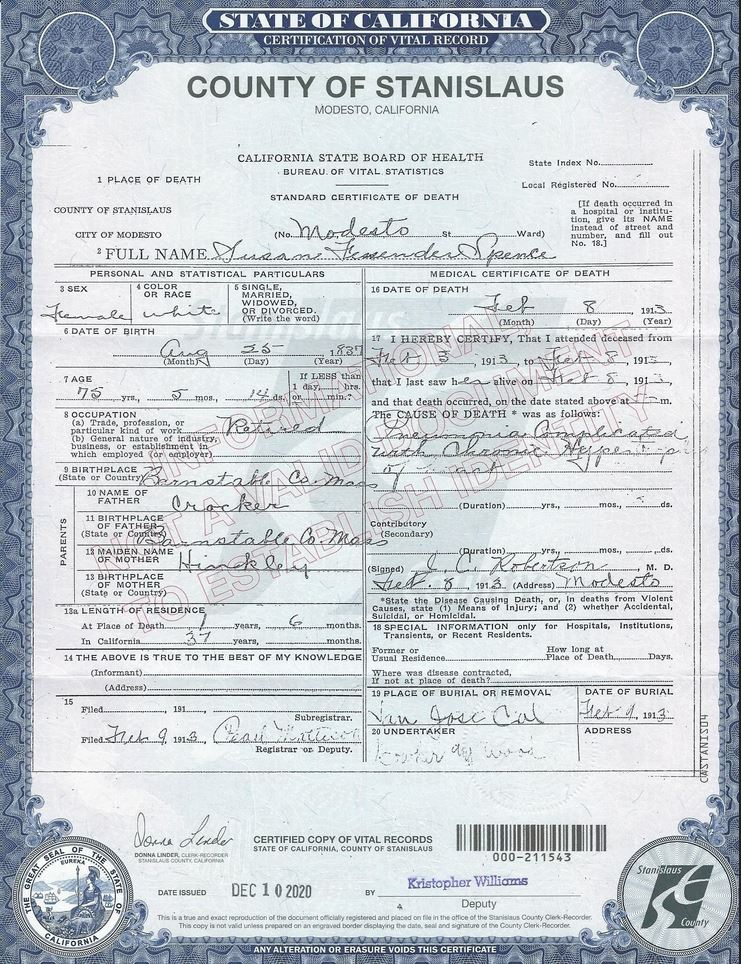 STATE OF CALIFORNIA
CERTIFICATION OF VITAL RECORD
COUNTY OF STANISLAUS
MODESTO, CALIFORNIA
CALIFORNIA STATE BOARD OF HEALTH
BUREAU OF VITAL STATISTICS
STANDARD CERTIFICATE OF DEATH
State Index No.
Local Registered No.
1 PLACE OF DEATH
COUNTY OF STANISLAUS
CITY OF MODESTO
(No. Modesto St Ward)
[If death occurred in a hospital or institution, give its NAME instead of street and number, and fill out No. 18.]
2 FULL NAME Susan Fessenden Spence
PERSONAL AND STATISTICAL PARTICULARS
3 SEX
Female
4 COLOR OR RACE
white
5 SINGLE, MARRIED, WIDOWED, OR DIVORCED.
(Write the word)
6 DATE OF BIRTH
Aug 25 1837
(Month) (Day) (Year)
7 AGE
75 yrs., 5 mos. 14 ds.
If LESS than 1 day, hrs. or min.
8 OCCUPATION
(a) Trade, profession, or particular kind of work
(b) General nature of industry, business, or establishment in which employed (or employer)
Retired
9 BIRTHPLACE
(State or Country) Barnstable Co. Mass
PARENTS
10 NAME OF FATHER
Crocker
11 BIRTHPLACE OF FATHER
(State or Country) Barnstable Co. Mass
12 MAIDEN NAME OF MOTHER
Hinckley
13 BIRTHPLACE OF MOTHER
(State or Country)
13a LENGTH OF RESIDENCE
At Place of Death 1 years, 6 months.
In California 37 years, months.
14 THE ABOVE IS TRUE TO THE BEST OF MY KNOWLEDGE
(Informant)
(Address)
15
Filed , 191
Subregistrar.
Filed Feb. 9, 1913
Registrar or Deputy.
MEDICAL CERTIFICATE OF DEATH
16 DATE OF DEATH
Feb 8 1913
(Month) (Day) (Year)
17 I HEREBY CERTIFY, That I attended deceased from
Feb 3, 1913, to Feb 8, 1913,
that I last saw her alive on Feb 8, 1913,
and that death occurred, on the date stated above at m.
The CAUSE OF DEATH * was as follows:
Pneumonia Complicated
with Chronic
of heart
(Duration) yrs., mos., ds.
Contributory
(Secondary)
(Duration) yrs., mos., ds.
(Signed) J. C. Robertson, M. D.
Feb. 8 1913 (Address) Modesto
*State the Disease Causing Death, or, in deaths from Violent Causes, state (1) Means of Injury; and (2) whether Accidental, Suicidal, or Homicidal.
18 SPECIAL INFORMATION only for Hospitals, Institutions, Transients, or Recent Residents.
Former or Usual Residence
How long at Place of Death Days.
Where was disease contracted, If not at place of death?
19 PLACE OF BURIAL OR REMOVAL
San Jose Cal
DATE OF BURIAL
Feb 9, 1913
20 UNDERTAKER
ADDRESS
INFORMATIONAL
NOT A VALID DOCUMENT
TO ESTABLISH IDENTITY
CASTANIS04
Donna Linder
DONNA LINDER, CLERK-RECORDER
STANISLAUS COUNTY, CALIFORNIA
CERTIFIED COPY OF VITAL RECORDS
STATE OF CALIFORNIA, COUNTY OF STANISLAUS
000-211543
DATE ISSUED DEC 10 2020
BY Kristopher Williams
Deputy
This is a true and exact reproduction of the document officially registered and placed on file in the office of the Stanislaus County Clerk-Recorder.
This copy is not valid unless prepared on an engraved border displaying the date, seal and signature of the County Clerk-Recorder.
THE GREAT SEAL OF THE STATE OF CALIFORNIA
EUREKA
Stanislaus County
ANY ALTERATION OR ERASURE VOIDS THIS CERTIFICATE